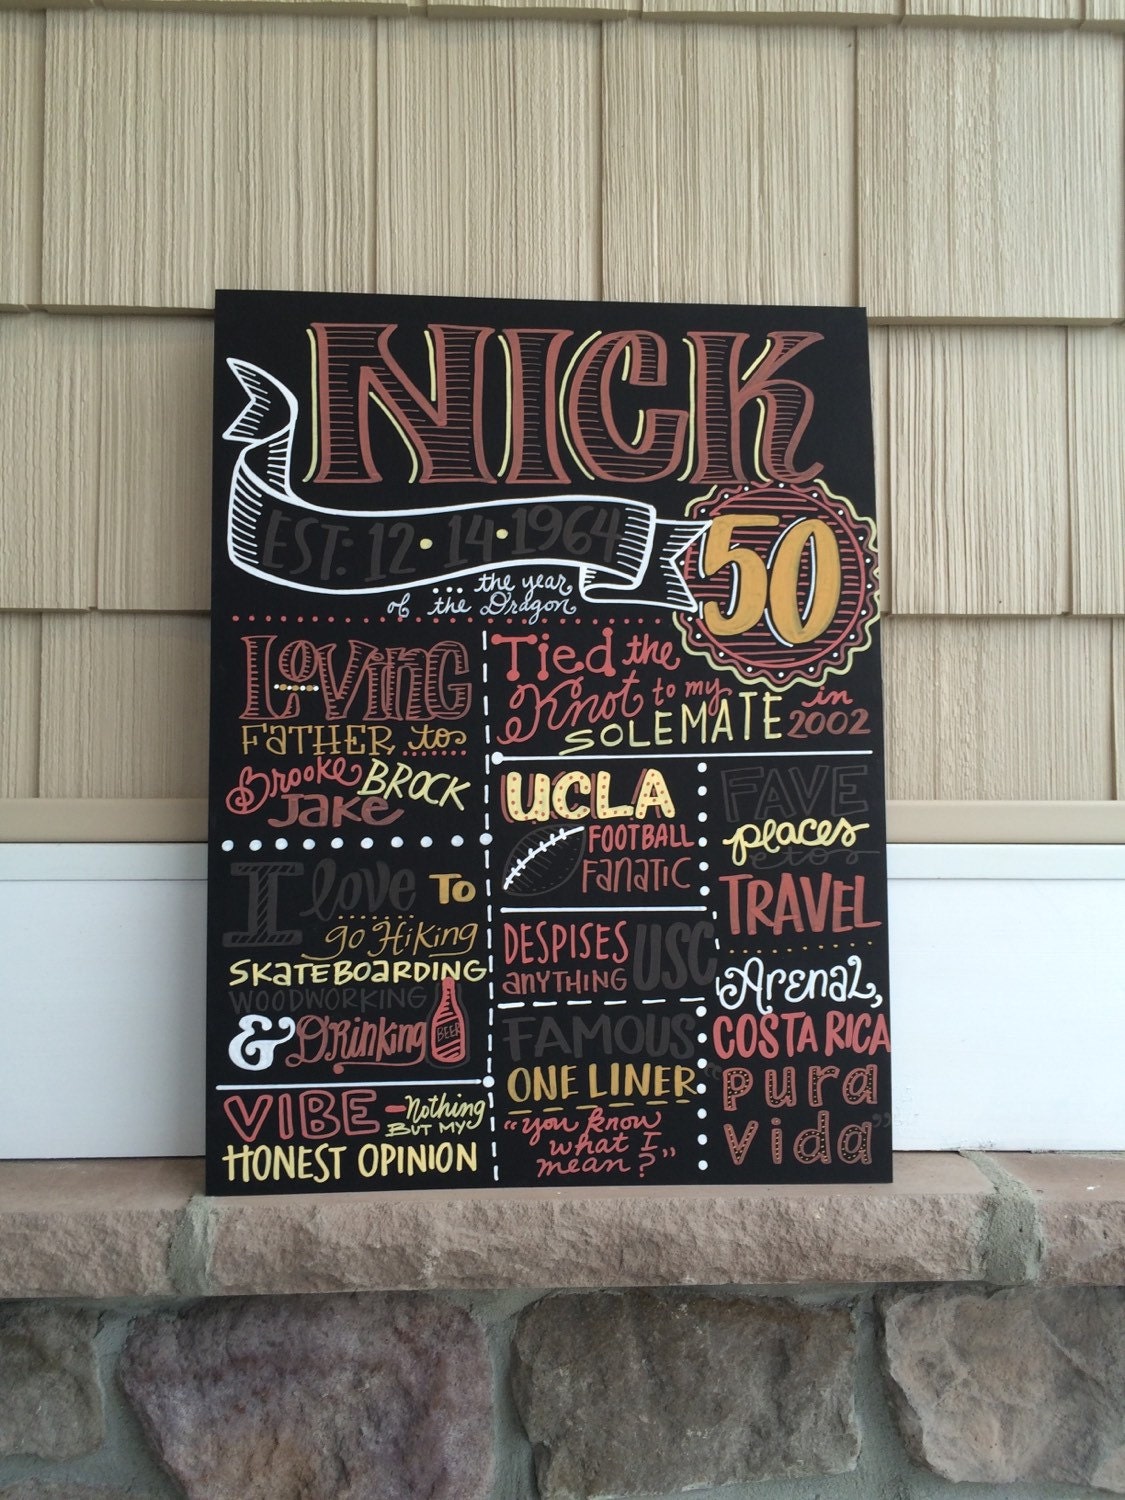 NICK
EST: 12 · 14 · 1964
50
... the year
of the Dragon
LOVING
FATHER to
Brooke BROCK
Jake
Tied the
Knot to my
SOLEMATE in
2002
I love TO
go Hiking
SKATEBOARDING
WOODWORKING
& Drinking
BEER
VIBE - Nothing
BUT MY
HONEST OPINION
UCLA
FOOTBALL
FANATIC
DESPISES
ANYTHING USC
FAMOUS
ONE LINER
"you know
what I
mean?"
FAVE
places
to
TRAVEL
Arenal,
COSTA RICA
"pura
vida"